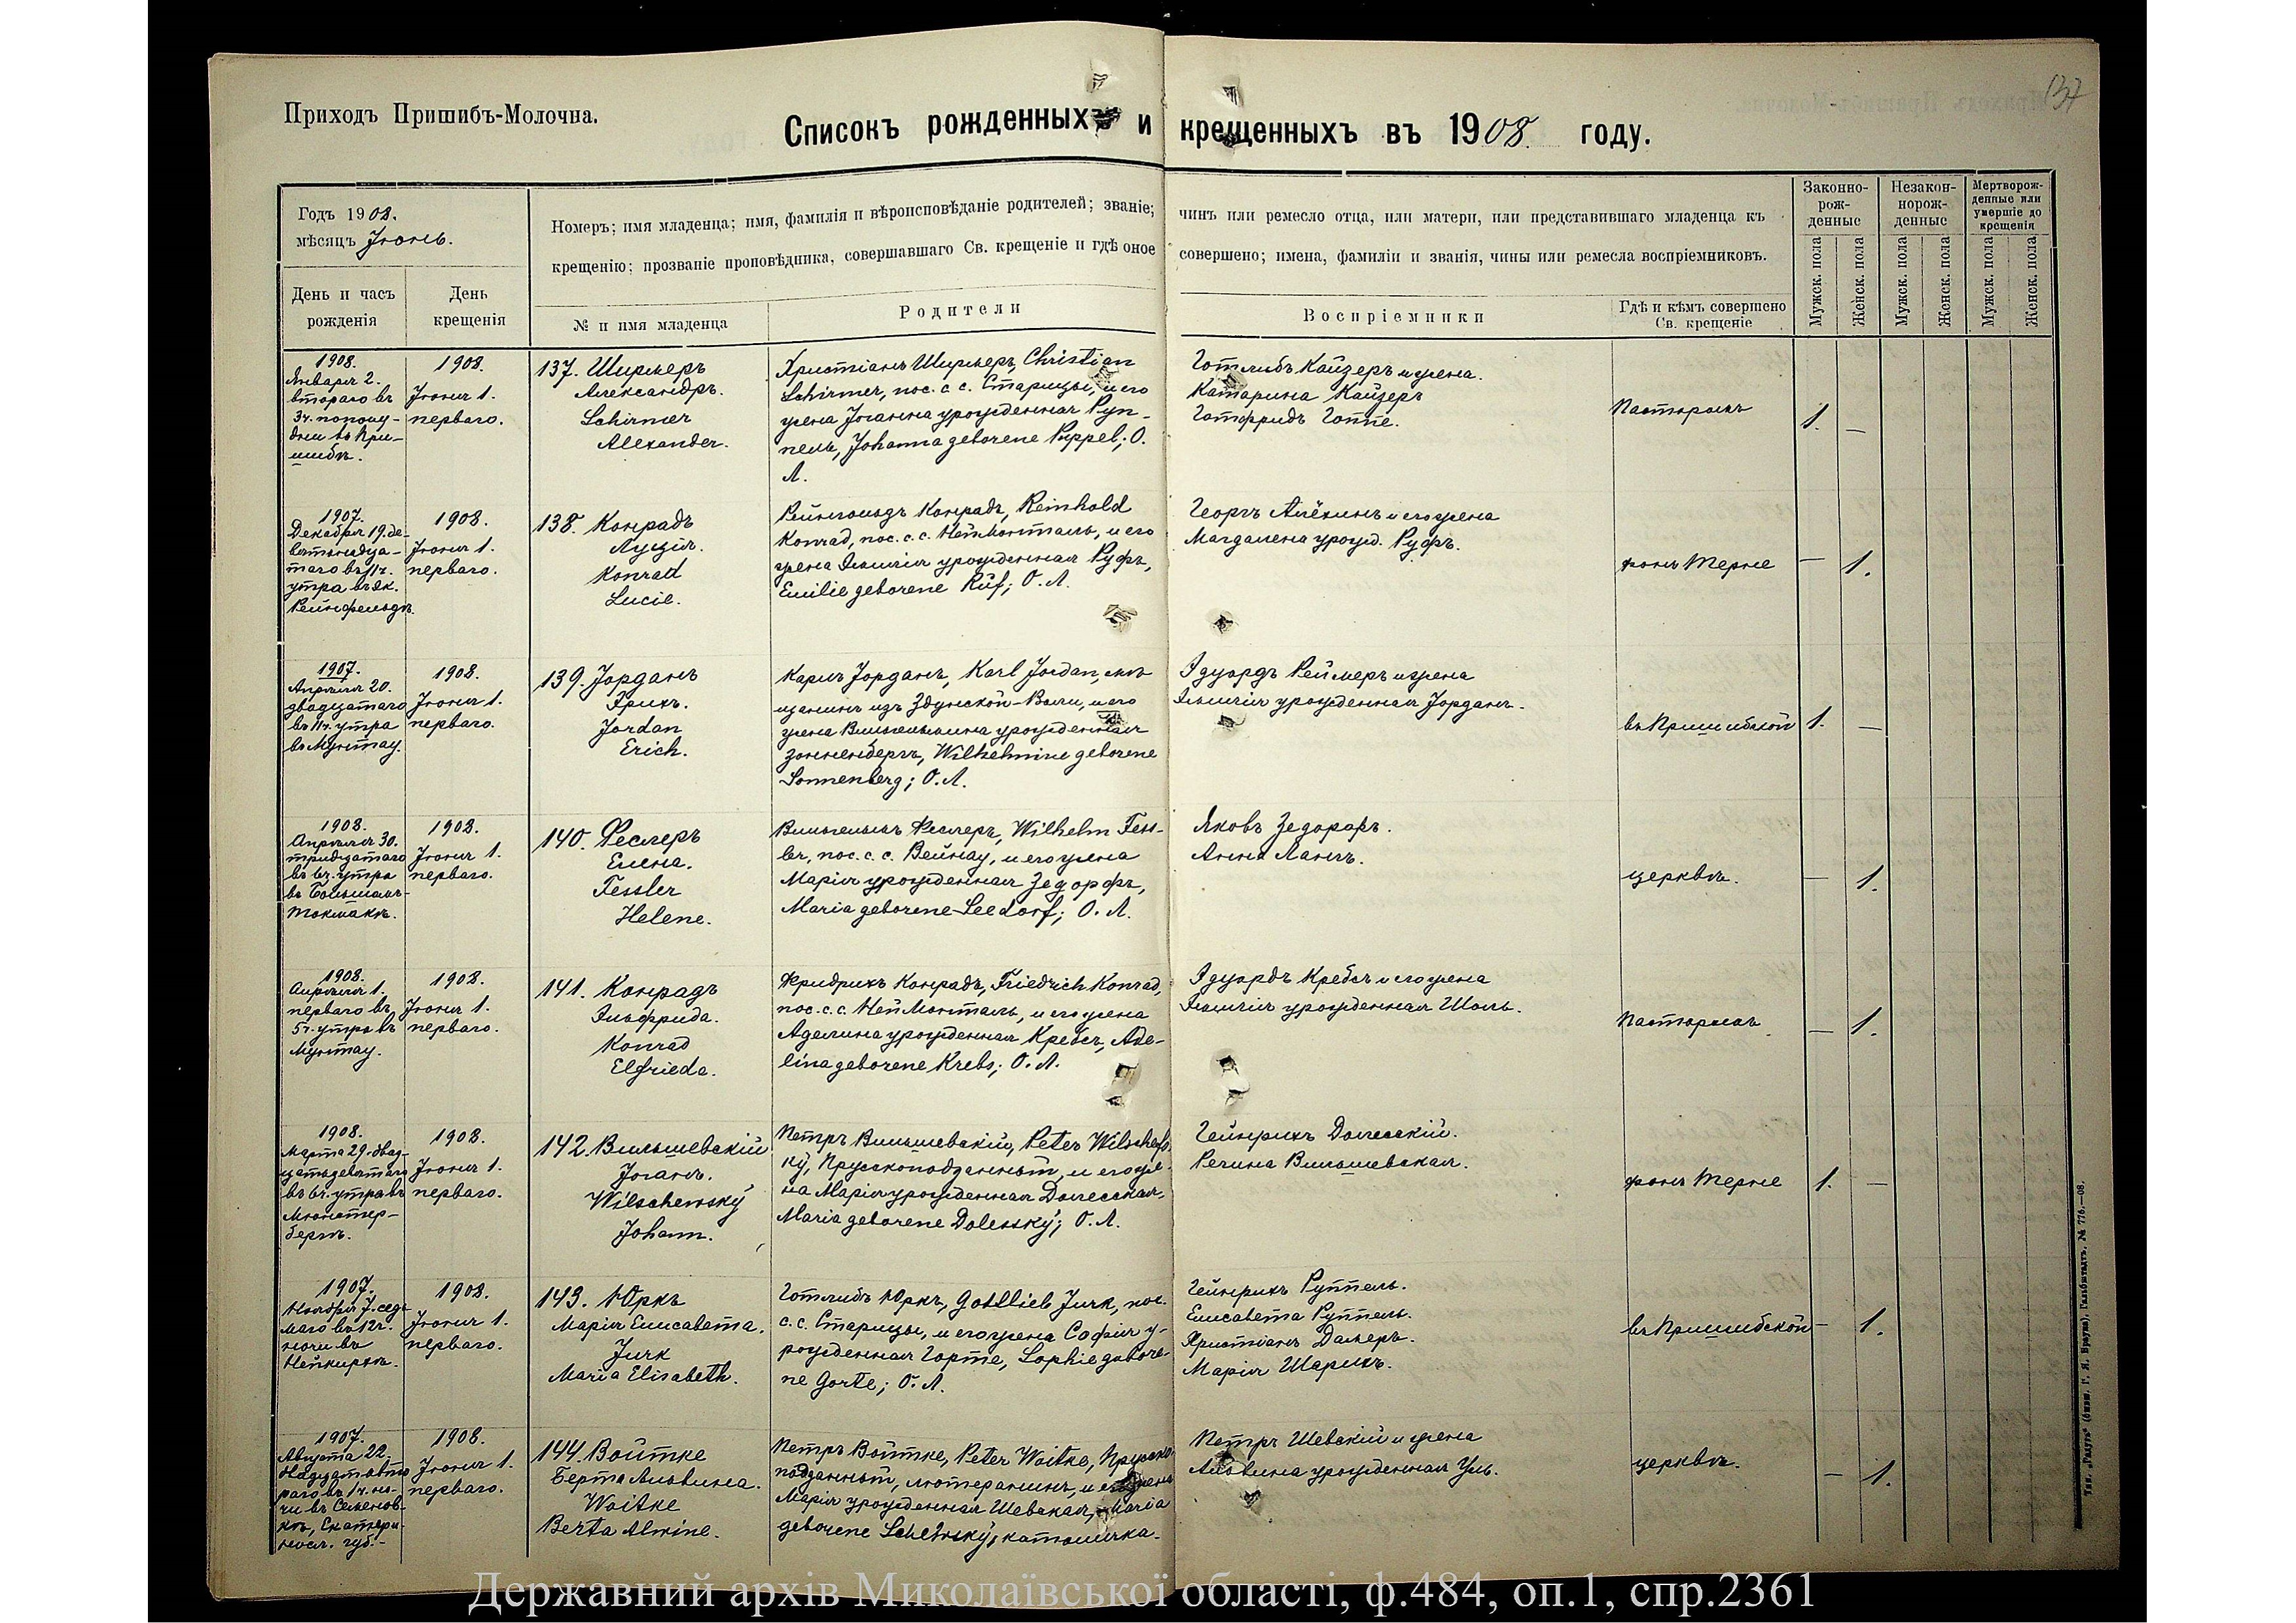 137
Приходъ Пришибъ-Молочна.
Списокъ рожденныхъ и крещенныхъ въ 1908 году.
Годъ 1908.
мѣсяцъ Іюнь.
Номеръ; имя младенца; имя, фамилія и вѣроисповѣданіе родителей; званіе; чинъ или ремесло отца, или матери, или представившаго младенца къ
крещенію; прозваніе проповѣдника, совершавшаго Св. крещеніе и гдѣ оное совершено; имена, фамиліи и званія, чины или ремесла воспріемниковъ.
Законно-
рож-
денные
Незакон-
норож-
денные
Мертворож-
денные или
умершіе до
крещенія
День и часъ
рожденія
День
крещенія
№ и имя младенца
Родители
Воспріемники
Гдѣ и кѣмъ совершено
Св. крещеніе
Мужск. пола
Женск. пола
Мужск. пола
Женск. пола
Мужск. пола
Женск. пола
1908.
Января 2.
втораго въ
3ч. пополу-
дни въ При-
шибѣ.
1908.
Іюня 1.
перваго.
137. Ширмеръ
Александръ.
Schirmer
Alexander.
Христіанъ Ширмеръ, Christian
Schirmer, пос. с. с. Старицы, и его
жена Іоганна урожденная Руп-
пель, Johanna geborene Ruppel; О.
Л.
Готлибъ Кайзеръ и жена.
Катарина Кайзеръ
Готфридъ Гоппе.
Пасторомъ
1. —
1907.
Декабря 19. де-
вятнадца-
таго въ 11ч.
утра въ эк.
Рейнфельдъ.
1908.
Іюня 1.
перваго.
138. Конрадъ
Луція.
Konrad
Lucie.
Рейнгольдъ Конрадъ, Reinhold
Konrad, пос. с. с. НейМонталь, и его
жена Эмилія урожденная Руфъ,
Emilie geborene Ruf; О. Л.
Георгъ Алёхинъ и его жена
Магдалена урожд. Руфъ.
фонъ Терне
— 1.
1907.
Апрѣля 20.
двадцатаго
въ 11ч. утра
въ Мунтау.
1908.
Іюня 1.
перваго.
139. Іорданъ
Эрихъ.
Jordan
Erich.
Карлъ Іорданъ, Karl Jordan, мѣ-
щанинъ изъ Здунской-Воли, и его
жена Вильгельмина урожденная
Зонненбергъ, Wilhelmine geborene
Sonnenberg; О. Л.
Эдуардъ Реймеръ и жена
Эмилія урожденная Іорданъ.
въ Пришибской
1. —
1908.
Апрѣля 30.
тридцатаго
въ 6ч. утра
въ Большомъ-
Токмакѣ.
1908.
Іюня 1.
перваго.
140. Феслеръ
Елена.
Fessler
Helene.
Вильгельмъ Феслеръ, Wilhelm Fess-
ler, пос. с. с. Вейнау, и его жена
Марія урожденная Зедорфъ,
Maria geborene Seedorf; О. Л.
Яковъ Зедорфъ.
Анна Лангъ.
церквѣ.
— 1.
1908.
Апрѣля 1.
перваго въ
5ч. утра въ
Мунтау.
1908.
Іюня 1.
перваго.
141. Конрадъ
Эльфрида.
Konrad
Elfrieda.
Фридрихъ Конрадъ, Friedrich Konrad,
пос. с. с. НейМонталь, и его жена
Аделина урожденная Кребсъ, Ade-
lina geborene Krebs; О. Л.
Эдуардъ Кребсъ и его жена
Эмилія урожденная Шоль.
Пасторомъ
— 1.
1908.
Марта 29. двад-
цатьдевятаго
въ 6ч. утра въ
Мюнстер-
бергѣ.
1908.
Іюня 1.
перваго.
142. Вильшевскій
Іоганъ.
Wilschewsky
Johann.
Петръ Вильшевскій, Peter Wilschews-
ky, Прусскоподданный, и его же-
на Марія урожденная Долесская,
Maria geborene Dolessky; О. Л.
Гейнрихъ Долесскій.
Регина Вильшевская.
фонъ Терне
1. —
1907.
Ноября 7. седь-
маго въ 12ч.
ночи въ
Нейкирхъ.
1908.
Іюня 1.
перваго.
143. Юркъ
Марія Елисавета.
Jurk
Maria Elisabeth.
Готлибъ Юркъ, Gottlieb Jurk, пос.
с. с. Старицы, и его жена Софія у-
рожденная Горте, Sophie gebore-
ne Gorte; О. Л.
Гейнрихъ Руппель.
Елисавета Руппель.
Христіанъ Далеръ.
Марія Шарихъ.
въ Пришибской
— 1.
1907.
Августа 22.
двадцатьвто-
раго въ 1ч. но-
чи въ Семенов-
кѣ, Екатери-
носл. губ.-
1908.
Іюня 1.
перваго.
144. Войтке
Берта Альвина.
Woitke
Berta Alwine.
Петръ Войтке, Peter Woitke, Прусско-
подданный, лютеранинъ, и его жена
Марія урожденная Шевская, Maria
geborene Schewsky, католичка.
Петръ Шевскій и жена
Альвина урожденная Уль.
церквѣ.
— 1.
Тип. „Радуга“ (бывш. Г. Я. Брауна), Гальбштадтъ. № 776.—08.
Державний архів Миколаївської області, ф.484, оп.1, спр.2361